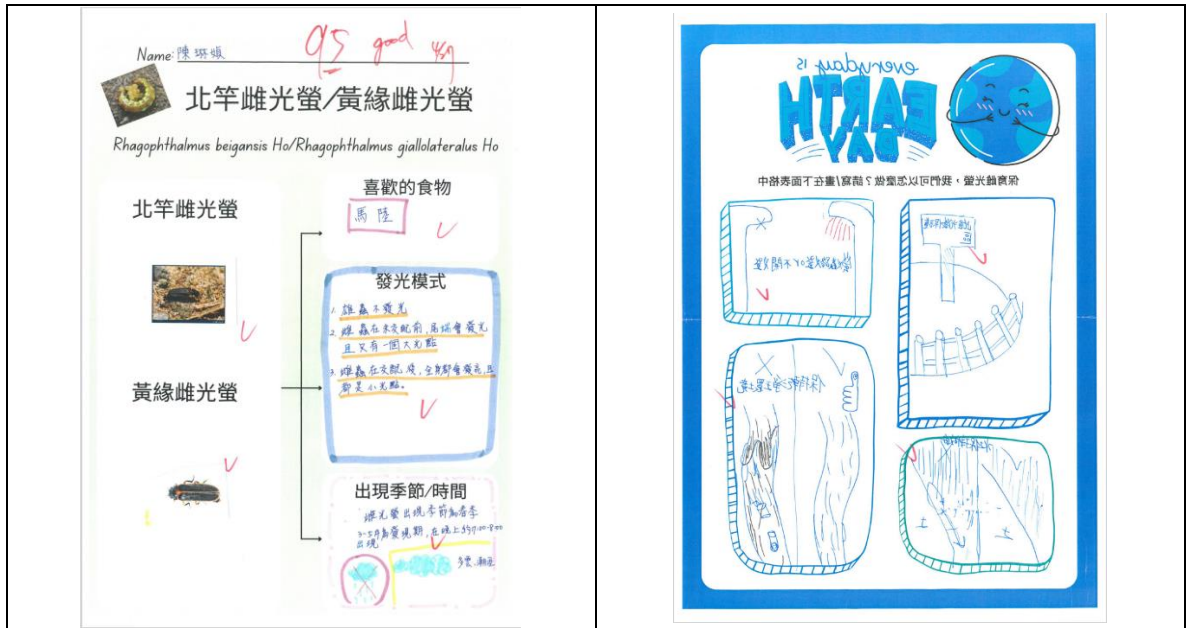 Name: 陳琳媜
95 good
北竿雌光螢/黃緣雌光螢
Rhagophthalmus beigansis Ho/Rhagophthalmus giallolateralus Ho
北竿雌光螢
黃緣雌光螢
喜歡的食物
馬陸
發光模式
1. 雄蟲不發光
2. 雌蟲在未交配前,尾端會發光
且只有一個大光點
3. 雌蟲在交配後,全身都會發亮,且
都是小光點。
出現季節/時間
雌光螢出現季節為春季
3~5月為發現期,在晚上約7:00-8:00
出現
多雲、潮濕
everyday is
EARTH
DAY
保育雌光螢,我們可以怎麼做?請寫/畫在下面表格中
or不開光燈
保持乾淨土壤
土
土